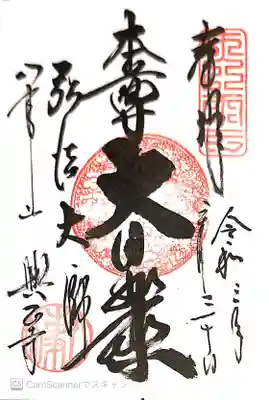 奉拝
令和三年
本尊
大日如来
弘法大師
八事山
興正寺
CamScannerでスキャン